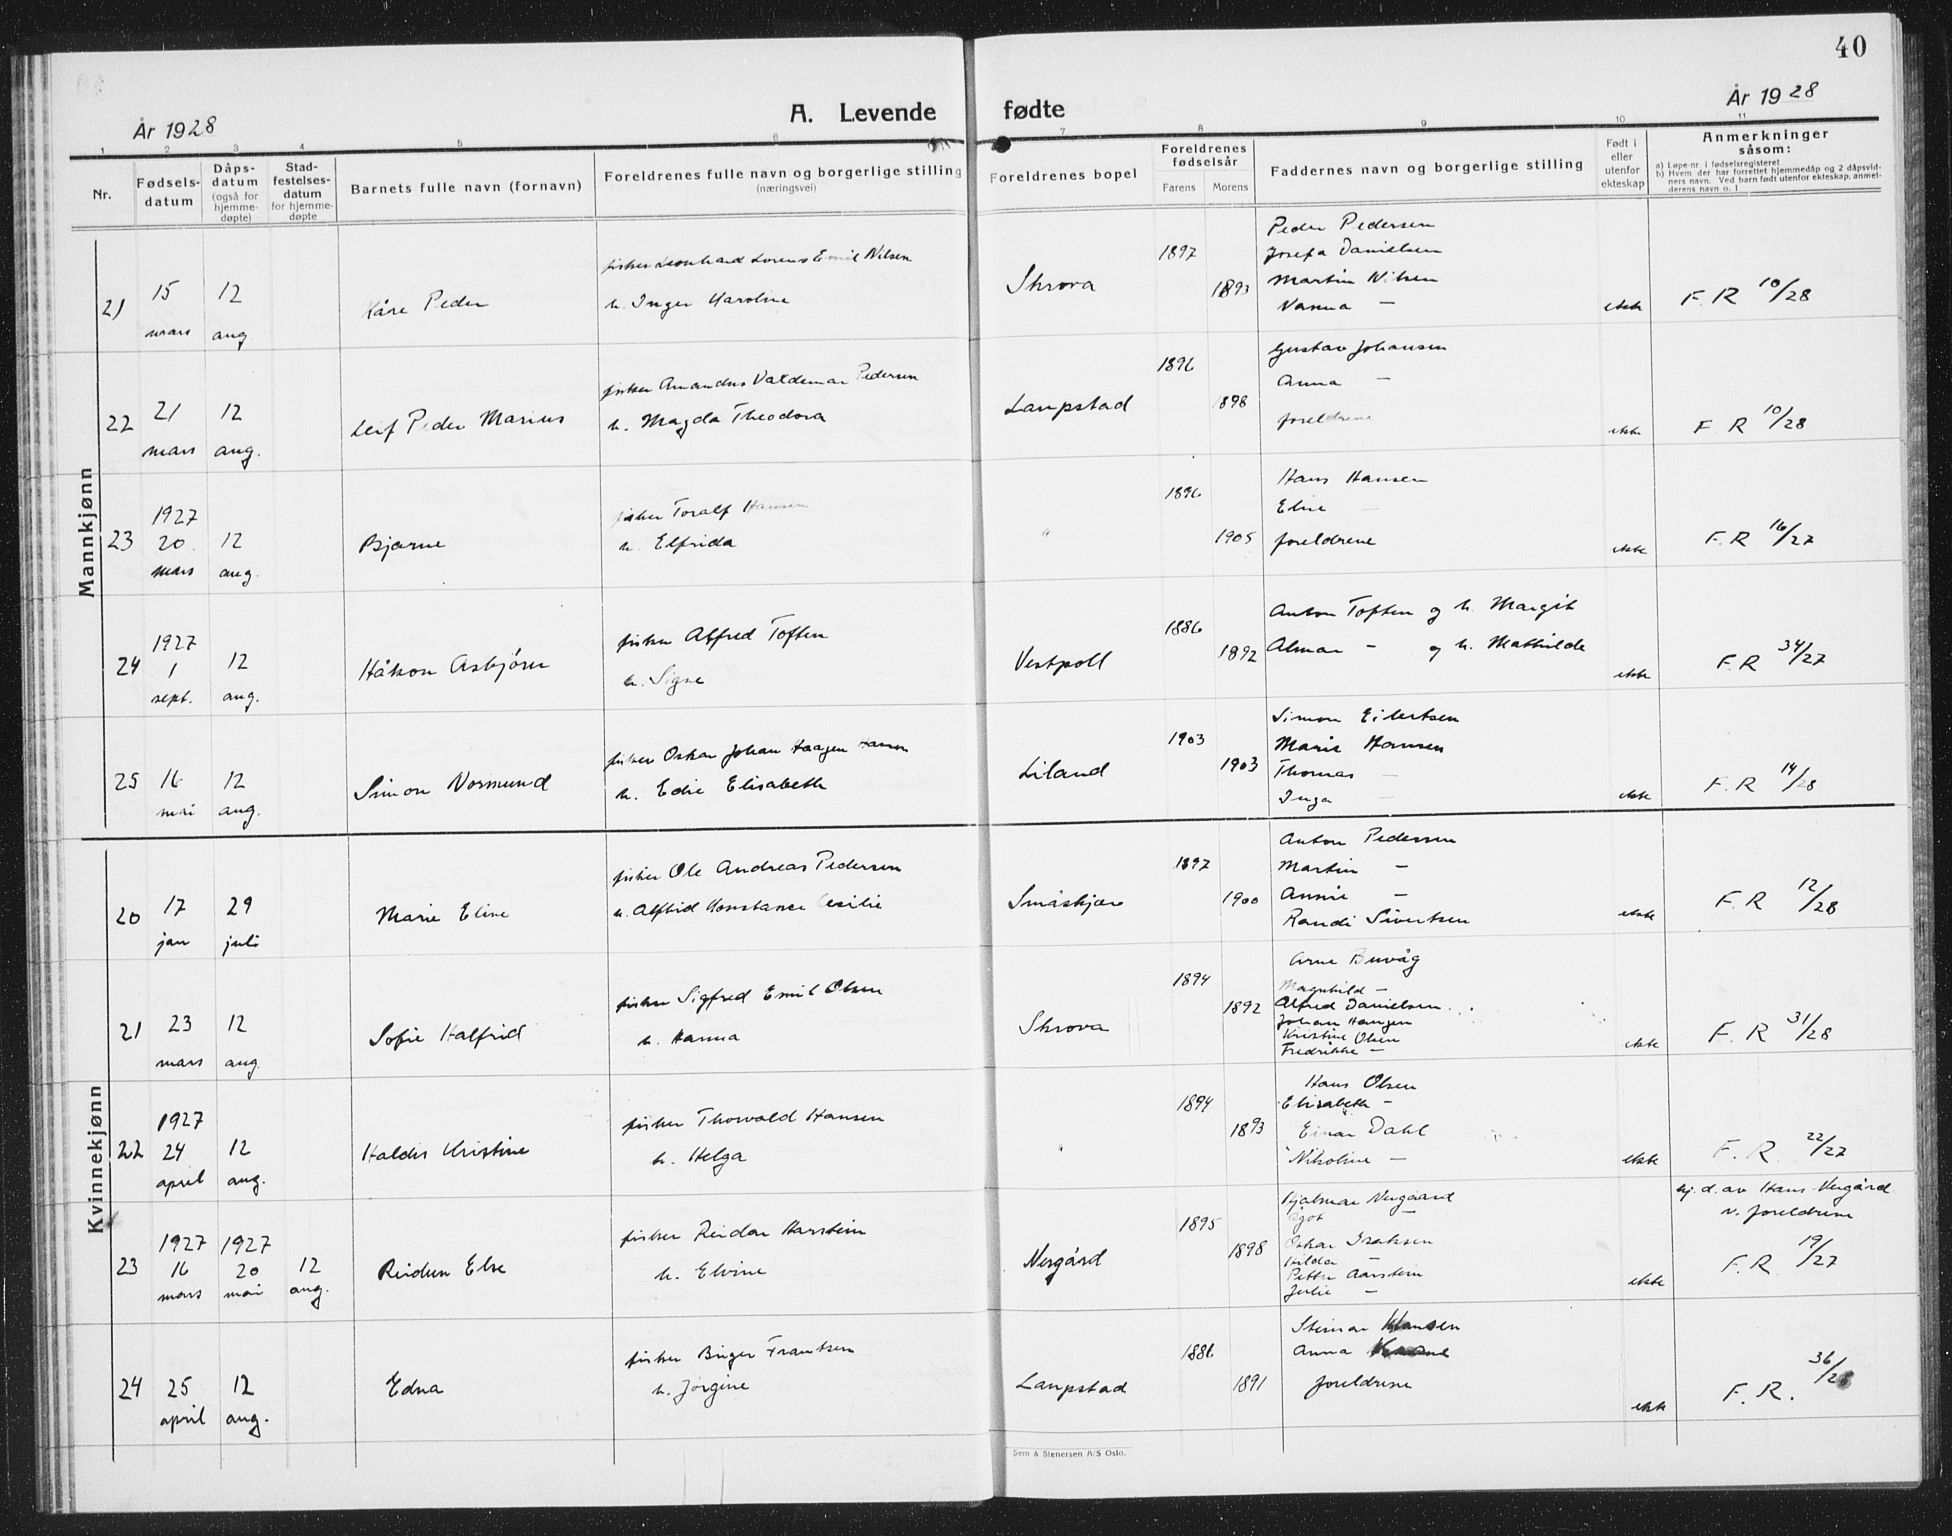 40
År 1928
A. Levende fødte
År 1928
1 2 3 4 5 6 7 8 9 10 11
Nr.
Fødsels-datum
Dåps-datum (også for hjemme-døpte)
Stad-festelses-datum for hjemme-døpte
Barnets fulle navn (fornavn)
Foreldrenes fulle navn og borgerlige stilling (næringsvei)
Foreldrenes bopel
Foreldrenes fødselsår
Farens Morens
Faddernes navn og borgerlige stilling
Født i eller utenfor ekteskap
Anmerkninger såsom:
a) Løpe-nr. i fødselsregisteret
b) Hvem der har forrettet hjemmedåp og 2 dåpsvid-
ners navn. Ved barn født utenfor ekteskap, anmel-
derens navn o. l
Mannkjønn
21
15 mars
12 aug.
Kåre Peder
fisker Leonhard Lorens Emil Nilsen
h. Inger Karoline
Skrova
1897
1893
Peder Pedersen
Josefa Danielsen
Martin Nilsen
Vanna —
ekte
F. R 10/28
22
21 mars
12 aug.
Leif Peder Marius
fisker Amandus Valdemar Pedersen
h. Magda Theodora
Laupstad
1896
1898
Gustav Johansen
Anna —
foreldrene
ekte
F. R 10/28
23
1927
20 mars
12 aug.
Bjarne
fisker Toralf Hansen
h. Elfrida
"
1896
1905
Hans Hansen
Elise —
foreldrene
ekte
F. R 16/27
24
1927
1 sept.
12 aug.
Håkon Asbjörn
fisker Alfred Toften
h. Signe
Vestpoll
1886
1892
Anton Toften og h. Margit
Almar — og h. Mathilde
ekte
F. R 34/27
25
16 mai
12 aug.
Simon Normund
fisker Oskar Johan Haagen Hansen
h. Edie Elisabeth
Liland
1903
1903
Simon Eilertsen
Marie Hansen
Thomas —
Inga —
ekte
F. R 14/28
Kvinnekjønn
20
17 jan
29 juli
Marie Eline
fisker Ole Andreas Pedersen
h. Alfhid Konstance Cesilie
Småskjær
1897
1900
Anton Pedersen
Martin —
Annie —
Randi Sivertsen
ekte
F. R 12/28
21
23 mars
12 aug.
Sofie Halfrid
fisker Sigfred Emil Olsen
h. Hanna
Skrova
1894
1892
Arne Buvåg
Magnhild —
Alfred Danielsen
Johan Haugen
Kristine Olsen
Fredrikke —
ekte
F. R 31/28
22
1927
24 april
12 aug.
Haldis Kristine
fisker Thorvald Hansen
h. Helga
"
1894
1893
Hans Olsen
Elisabeth —
Einar Dahl
Nikoline —
ekte
F. R. 22/27
23
1927
16 mars
1927
20 mai
12 aug.
Reidun Else
fisker Reidar Harstein
h. Elvine
Nergård
1895
1898
Hjalmar Nergaard
Ågot —
Oskar Isaksen
Hilda —
Petter Aarstein
Julie —
ekte
hj. d. av Hans Nergård
v. foreldrene
F. R. 19/27
24
25 april
12 aug.
Edna
fisker Birger Frantsen
h. Jørgine
Laupstad
1886
1891
Steinar Hansen
Anna
foreldrene
ekte
F. R. 36/28
Sem & Stenersen A/S Oslo.